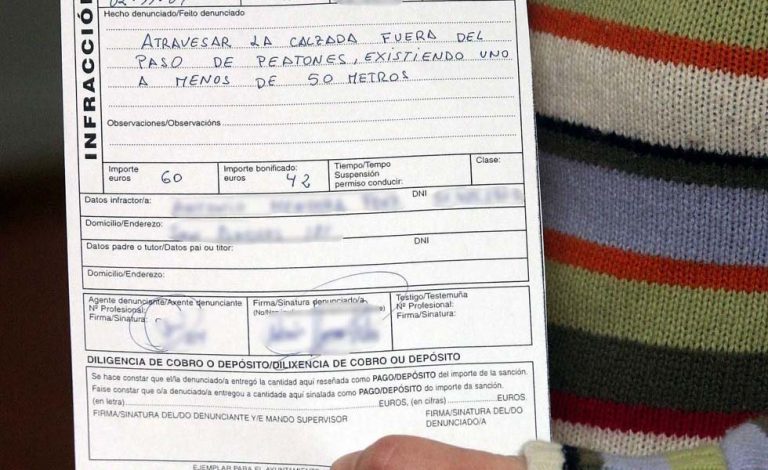 INFRACCIÓN
Hecho denunciado/Feito denunciado
ATRAVESAR LA CALZADA FUERA DEL
PASO DE PEATONES, EXISTIENDO UNO
A MENOS DE 50 METROS
Observaciones/Observacións
Importe euros 60
Importe bonificado: euros 42
Tiempo/Tempo Suspensión permiso conducir:
Clase:
Datos infractor/a: DNI
Domicilio/Enderezo:
Datos padre o tutor/Datos pai ou titor: DNI
Domicilio/Enderezo:
Agente denunciante/Axente denunciante
Nº Profesional:
Firma/Sinatura:
Firma/Sinatura denunciado/a
Testigo/Testemuña
Nº Profesional:
Firma/Sinatura:
DILIGENCIA DE COBRO O DEPÓSITO/DILIXENCIA DE COBRO OU DEPÓSITO
Se hace constar que el/la denunciado/a entregó la cantidad aquí reseñada como PAGO/DEPÓSITO del importe de la sanción.
Faise constar que o/a denuciado/a entregou a cantidade aquí sinalada como PAGO/DEPÓSITO do importe da sanción.
(en letra) EUROS, (en cifras) EUROS.
FIRMA/SINATURA DEL/DO DENUNCIANTE Y/E MANDO SUPERVISOR
FIRMA/SINATURA DEL/DO
DENUNCIADO/A
EJEMPLAR PARA EL